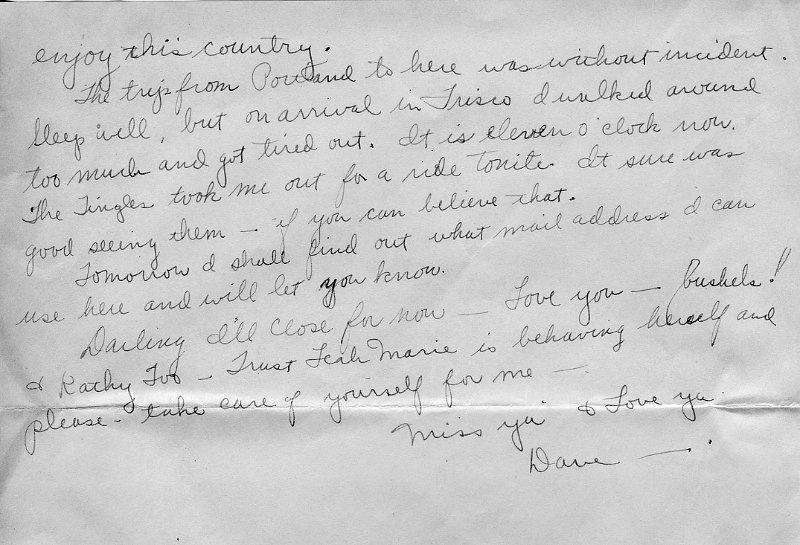 enjoy this country.
The trip from Portland to here was without incident.
Sleep well, but on arrival in Frisco I walked around
too much and got tired out. It is eleven o'clock now.
The Tingles took me out for a ride tonite. It sure was
good seeing them — if you can believe that.
Tomorrow I shall find out what mail address I can
use here and will let you know.
Darling I'll close for now — Love you — bushels!
& Kathy Too — Trust Leah Marie is behaving herself and
please - take care of yourself for me —
Miss ya & Love ya
Dave —.